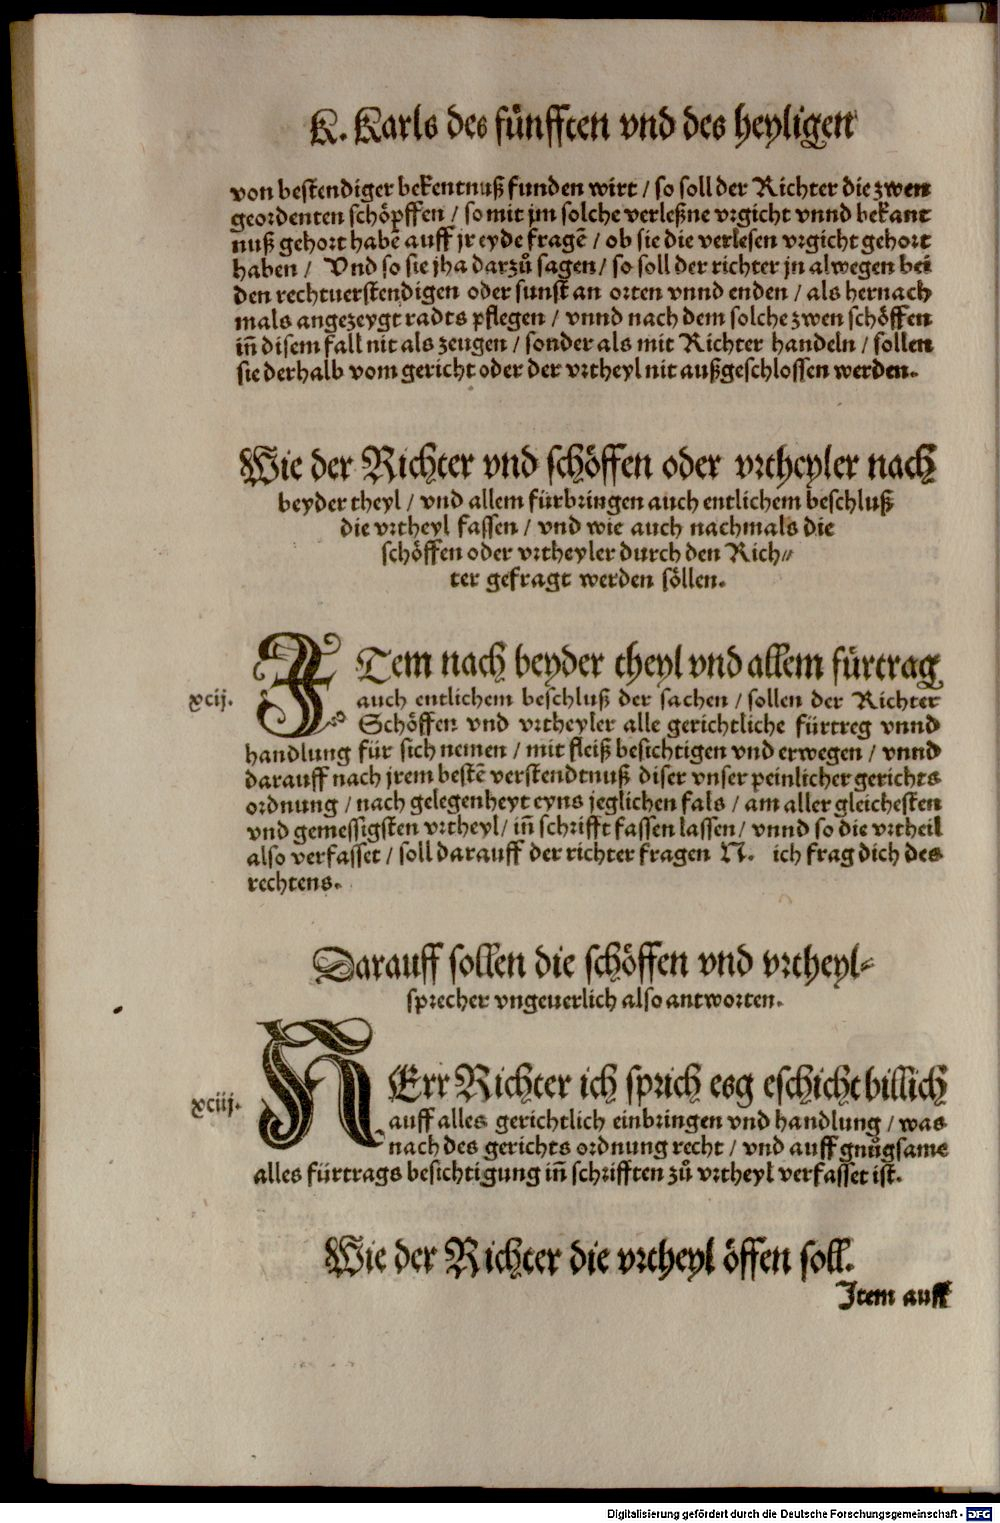 K. Karls des fünfften vnd des heyligen
von bestendiger bekentnuß funden wirt / so soll der Richter die zwen
geordenten schöpffen / so mit jm solche verleßne vrgicht vnnd bekant
nuß gehort habẽ auff jr eyde fragẽ / ob sie die verlesen vrgicht gehort
haben / Vnd so sie jha darzuͦ sagen / so soll der richter jn alwegen bei
den rechtuerstendigen oder sunst an orten vnnd enden / als hernach
mals angezeygt radts pflegen / vnnd nach dem solche zwen schöffen
iñ disem fall nit als zeugen / sonder als mit Richter handeln / sollen
sie derhalb vom gericht oder der vrtheyl nit außgeschlossen werden.
Wie der Richter vnd schöffen oder vrtheyler nach
beyder theyl / vnd allem fürbringen auch entlichem beschluß
die vrtheyl fassen / vnd wie auch nachmals die
schöffen oder vrtheyler durch den Rich⸗
ter gefragt werden söllen.
ITem nach beyder theyl vnd allem fürtrag
xcij. auch entlichem beschluß der sachen / sollen der Richter
Schöffen vnd vrtheyler alle gerichtliche fürtreg vnnd
handlung für sich nemen / mit fleiß besichtigen vnd erwegen / vnnd
darauff nach jrem bestẽ verstendtnuß diser vnser peinlicher gerichts
ordnung / nach gelegenheyt eyns jeglichen fals / am aller gleichesten
vnd gemessigsten vrtheyl / iñ schrifft fassen lassen / vnnd so die vrtheil
also verfasset / soll darauff der richter fragen N. ich frag dich des
rechtens.
Darauff sollen die schöffen vnd vrtheyl⸗
sprecher vngeuerlich also antworten.
HErr Richter ich sprich esg eschicht billich
xciij. auff alles gerichtlich einbringen vnd handlung / was
nach des gerichts ordnung recht / vnd auff gnuͦgsame
alles fürtrags besichtigung iñ schrifften zuͦ vrtheyl verfasset ist.
Wie der Richter die vrtheyl öffen soll.
Item auff
Digitalisierung gefördert durch die Deutsche Forschungsgemeinschaft - DFG